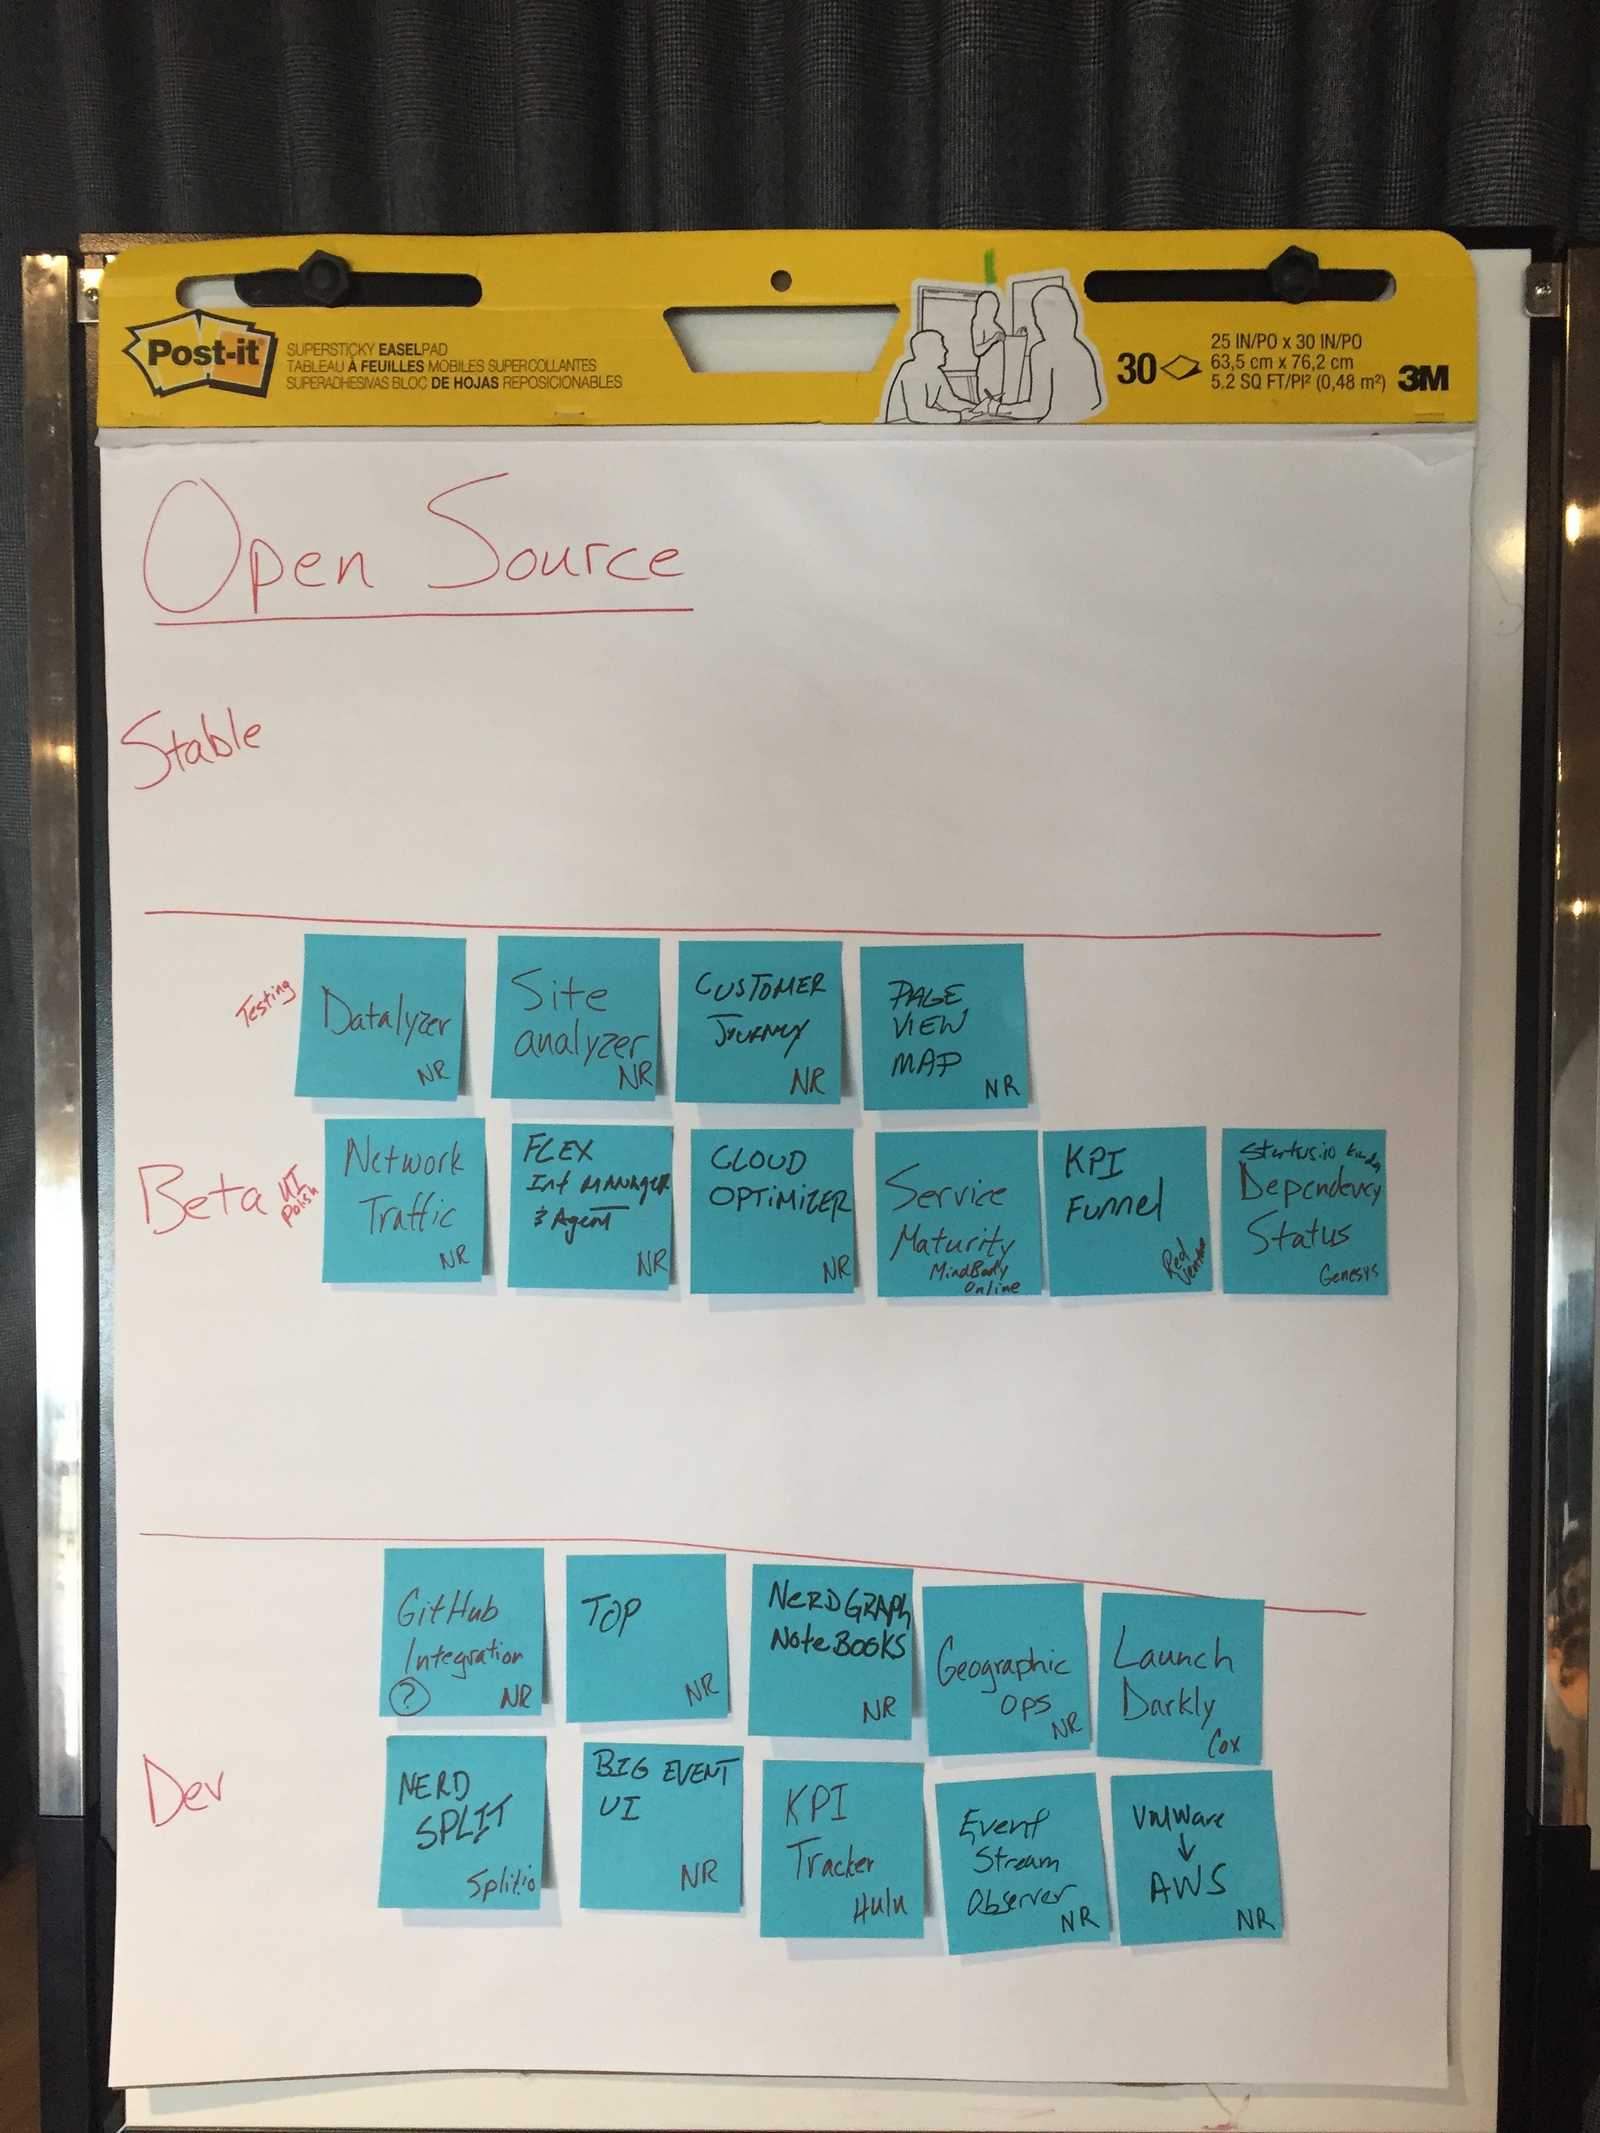 Post-it
SUPERSTICKY EASELPAD
TABLEAU À FEUILLES MOBILES SUPERCOLLANTES
SUPERADHESIVAS BLOC DE HOJAS REPOSICIONABLES
30
25 IN/PO x 30 IN/PO
63,5 cm x 76,2 cm
5.2 SQ FT/PI² (0,48 m²)
3M
Open Source
Stable
Testing
Datalyzer
NR
Site
analyzer
NR
CUSTOMER
JOURNEY
NR
PAGE
VIEW
MAP
NR
Beta
UI
Polish
Network
Traffic
NR
FLEX
Int MANAGER
& Agent
NR
CLOUD
OPTIMIZER
NR
Service
Maturity
MindBody
Online
KPI
Funnel
Red
Status.io kinda
Dependency
Status
Genesys
Dev
GitHub
Integration
?
NR
TOP
NR
NERDGRAPH
NoteBOOKS
NR
Geographic
OPS
NR
Launch
Darkly
Cox
NERD
SPLIT
Split.io
BIG EVENT
UI
NR
KPI
Tracker
Hulu
Event
Stream
Observer
NR
VMWare
↓
AWS
NR